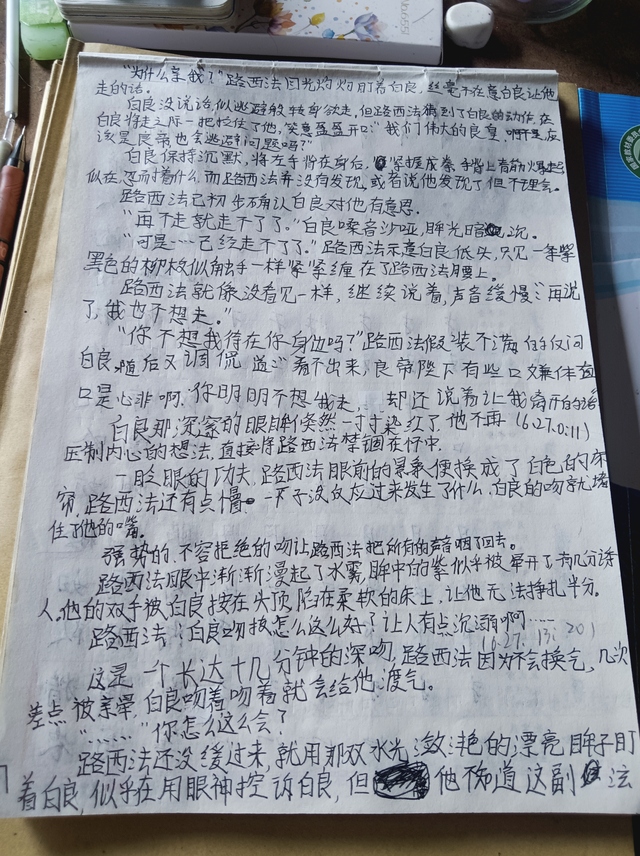 "为什么亲我？"路西法目光灼灼盯着白良，丝毫不在意白良让他
走的话。
白良没说话似逃避般转身欲走，但路西法猜到了白良的动作，在
白良将走之际一把拉住了他，笑意盈盈开口："我们伟大的良皇，
该是良帝也会逃避问题吗？"
白良保持沉默，将左手背在身后，紧握成拳，手背上青筋爆起
似在忍耐着什么，而路西法并没有发现，或者说他发现了但不理会。
路西法已初步确认白良对他有意思。
"再不走就走不了了。"白良嗓音沙哑，眸光暗沉。
"可是……已经走不了了。"路西法示意白良低头，只见一条紫
黑色的柳枝似触手一样紧紧缠在了路西法腰上。
路西法就像没看见一样，继续说着，声音缓慢："再说
了，我也不想走。"
"你不想我待在你身边吗？"路西法假装不满的反问
白良，随后又调侃道："看不出来，良帝陛下有些口嫌体直
口是心非啊，你明明不想我走，……却还说着让我离开的话
白良那深邃的眼眸倏然一寸寸染红了，他不再（6.27.0:11）
压制内心的想法，直接将路西法禁锢在怀中。
一眨眼的功夫，路西法眼前的景象便换成了白色的床
帘，路西法还有点懵，一下子没反应过来发生了什么，白良的吻就堵
住了他的嘴。
强势的、不容拒绝的吻让路西法把所有的声音咽了回去。
路西法眼中渐渐漫起了水雾，眸中的紫似乎被晕开了有几分诱
人，他的双手被白良按在头顶，陷在柔软的床上，让他无法挣扎半分。
路西法：白良吻技怎么这么好了让人有点沉溺啊……
（6.27.13:20）
这是一个长达十几分钟的深吻，路西法因为不会换气，几次
差点被亲晕，白良吻着吻着就会给他渡气。
"……"你怎么这么会？
路西法还没缓过来，就用那双水光潋滟的漂亮眸子盯
着白良，似乎在用眼神控诉白良，但他不知道这副